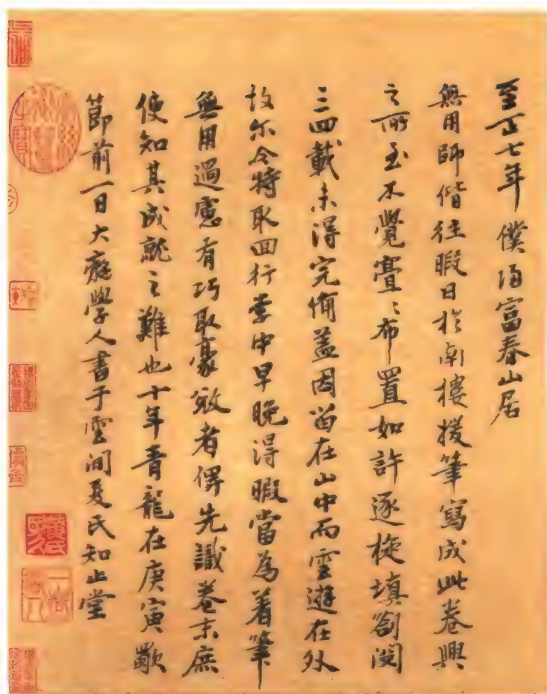 至正七年僕歸富春山居
無用師偕往暇日於南樓援筆寫成此卷興
之所至不覺亹〻布置如許逐旋填劄閱
三四載未得完備蓋因留在山中而雲遊在外
故尔今特取回行李中早晚得暇當為着筆
無用過慮有巧取豪敚者俾先識卷末庶
使知其成就之難也十年青龍在庚寅歜
節前一日大癡學人書于雲間夏氏知止堂